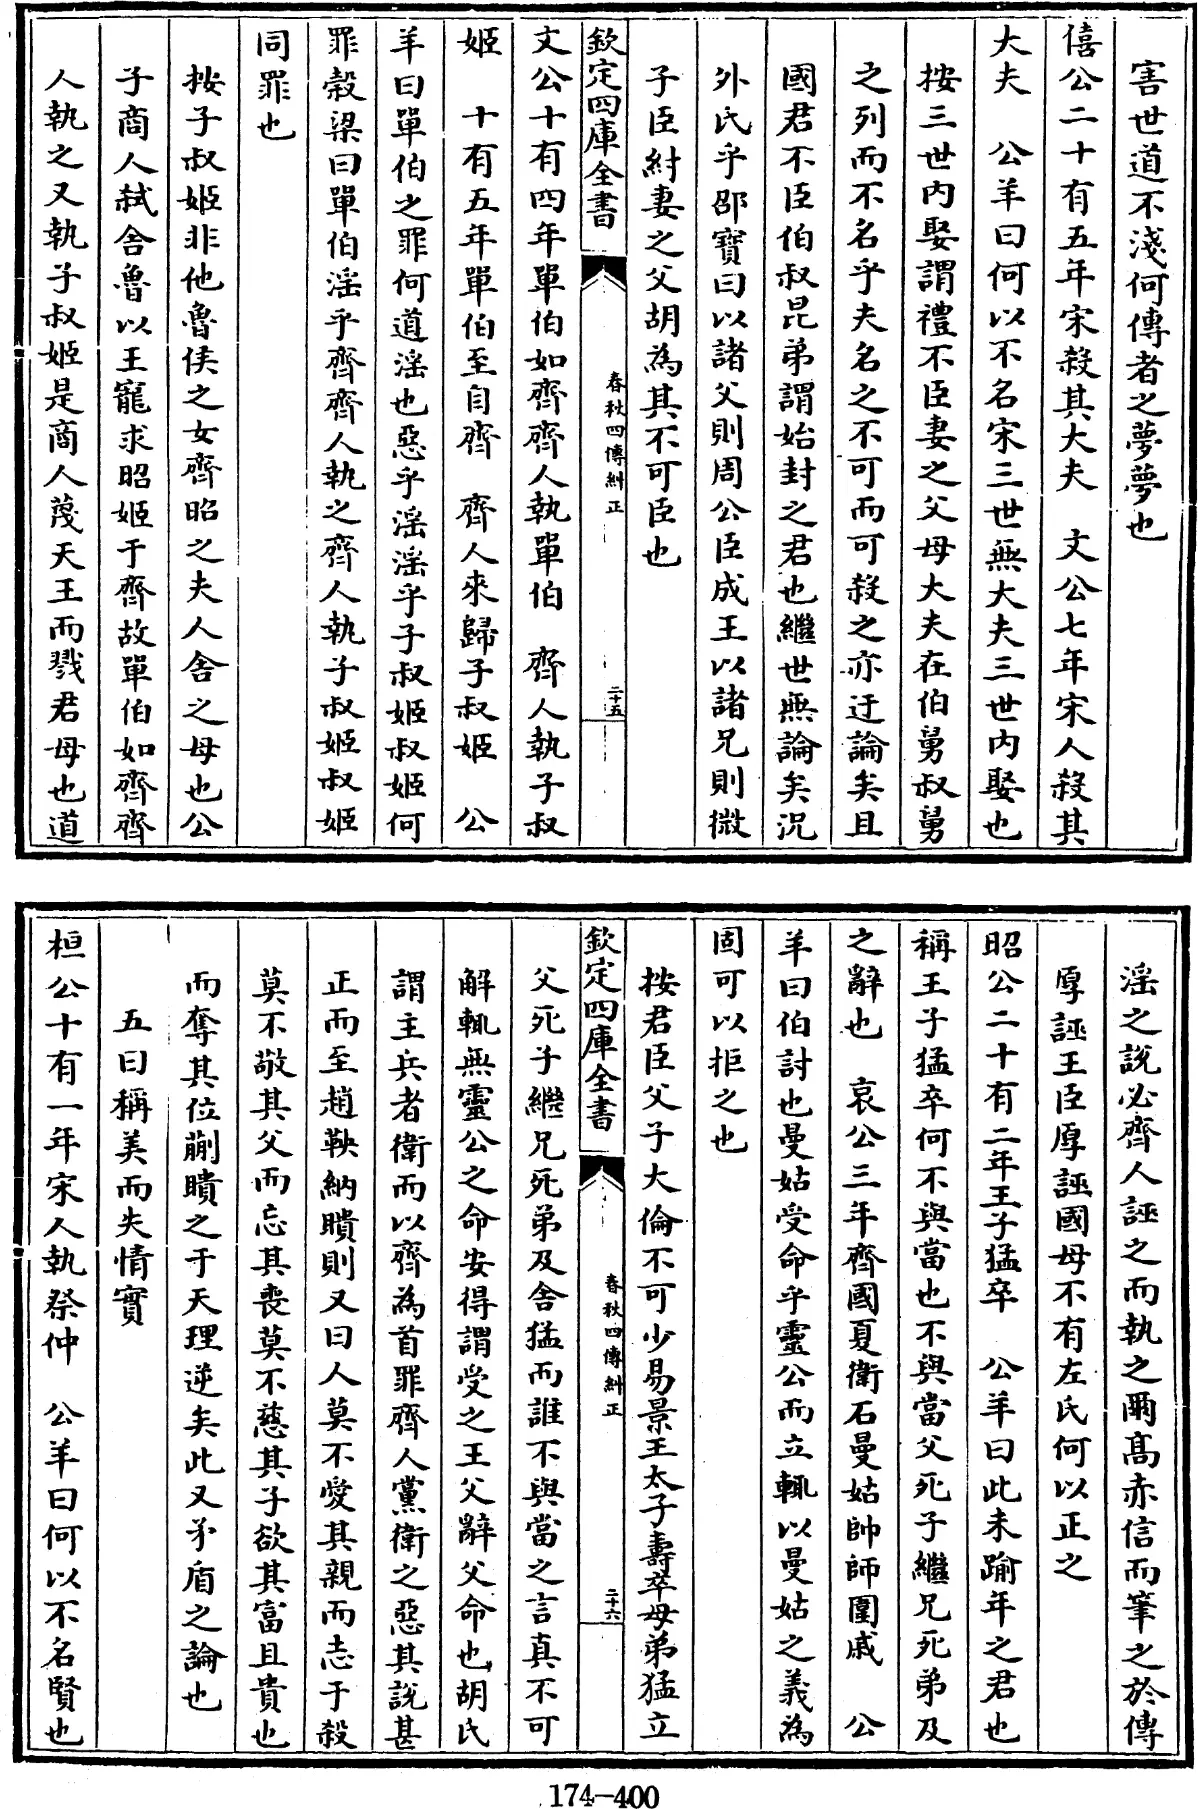 害世道不淺何傳者之夢夢也
僖公二十有五年宋殺其大夫　文公七年宋人殺其
大夫　公羊曰何以不名宋三世無大夫三世内娶也
按三世内娶謂禮不臣妻之父母大夫在伯舅叔舅
之列而不名乎夫名之不可而可殺之亦迂論矣且
國君不臣伯叔昆弟謂始封之君也繼世無論矣况
外氏乎邵寶曰以諸父則周公臣成王以諸兄則微
子臣紂妻之父胡為其不可臣也
欽定四庫全書
春秋四傳糾正
二十五
文公十有四年單伯如齊齊人執單伯　齊人執子叔
姬　十有五年單伯至自齊　齊人來歸子叔姬　公
羊曰單伯之罪何道淫也惡乎淫淫乎子叔姬叔姬何
罪榖梁曰單伯淫乎齊齊人執之齊人執子叔姬叔姬
同罪也
按子叔姬非他魯侯之女齊昭之夫人舍之母也公
子商人弑舍魯以王寵求昭姬于齊故單伯如齊齊
人執之又執子叔姬是商人蔑天王而戮君母也道
淫之説必齊人誣之而執之爾髙赤信而筆之於傳
厚誣王臣厚誣國母不有左氏何以正之
昭公二十有二年王子猛卒　公羊曰此未踰年之君也
稱王子猛卒何不與當也不與當父死子繼兄死弟及
之辭也　哀公三年齊國夏衛石曼姑帥師圍戚　公
羊曰伯討也曼姑受命乎靈公而立輒以曼姑之義為
固可以拒之也
按君臣父子大倫不可少易景王太子壽卒母弟猛立
欽定四庫全書
春秋四傳糾正
二十六
父死子繼兄死弟及舍猛而誰不與當之言真不可
解輒無靈公之命安得謂受之王父辭父命也胡氏
謂主兵者衛而以齊為首罪齊人黨衛之惡其説甚
正而至趙鞅納瞶則又曰人莫不愛其親而志于殺
莫不敬其父而忘其喪莫不慈其子欲其富且貴也
而奪其位蒯瞶之于天理逆矣此又矛盾之論也
五曰稱美而失情實
桓公十有一年宋人執祭仲　公羊曰何以不名賢也
174-400